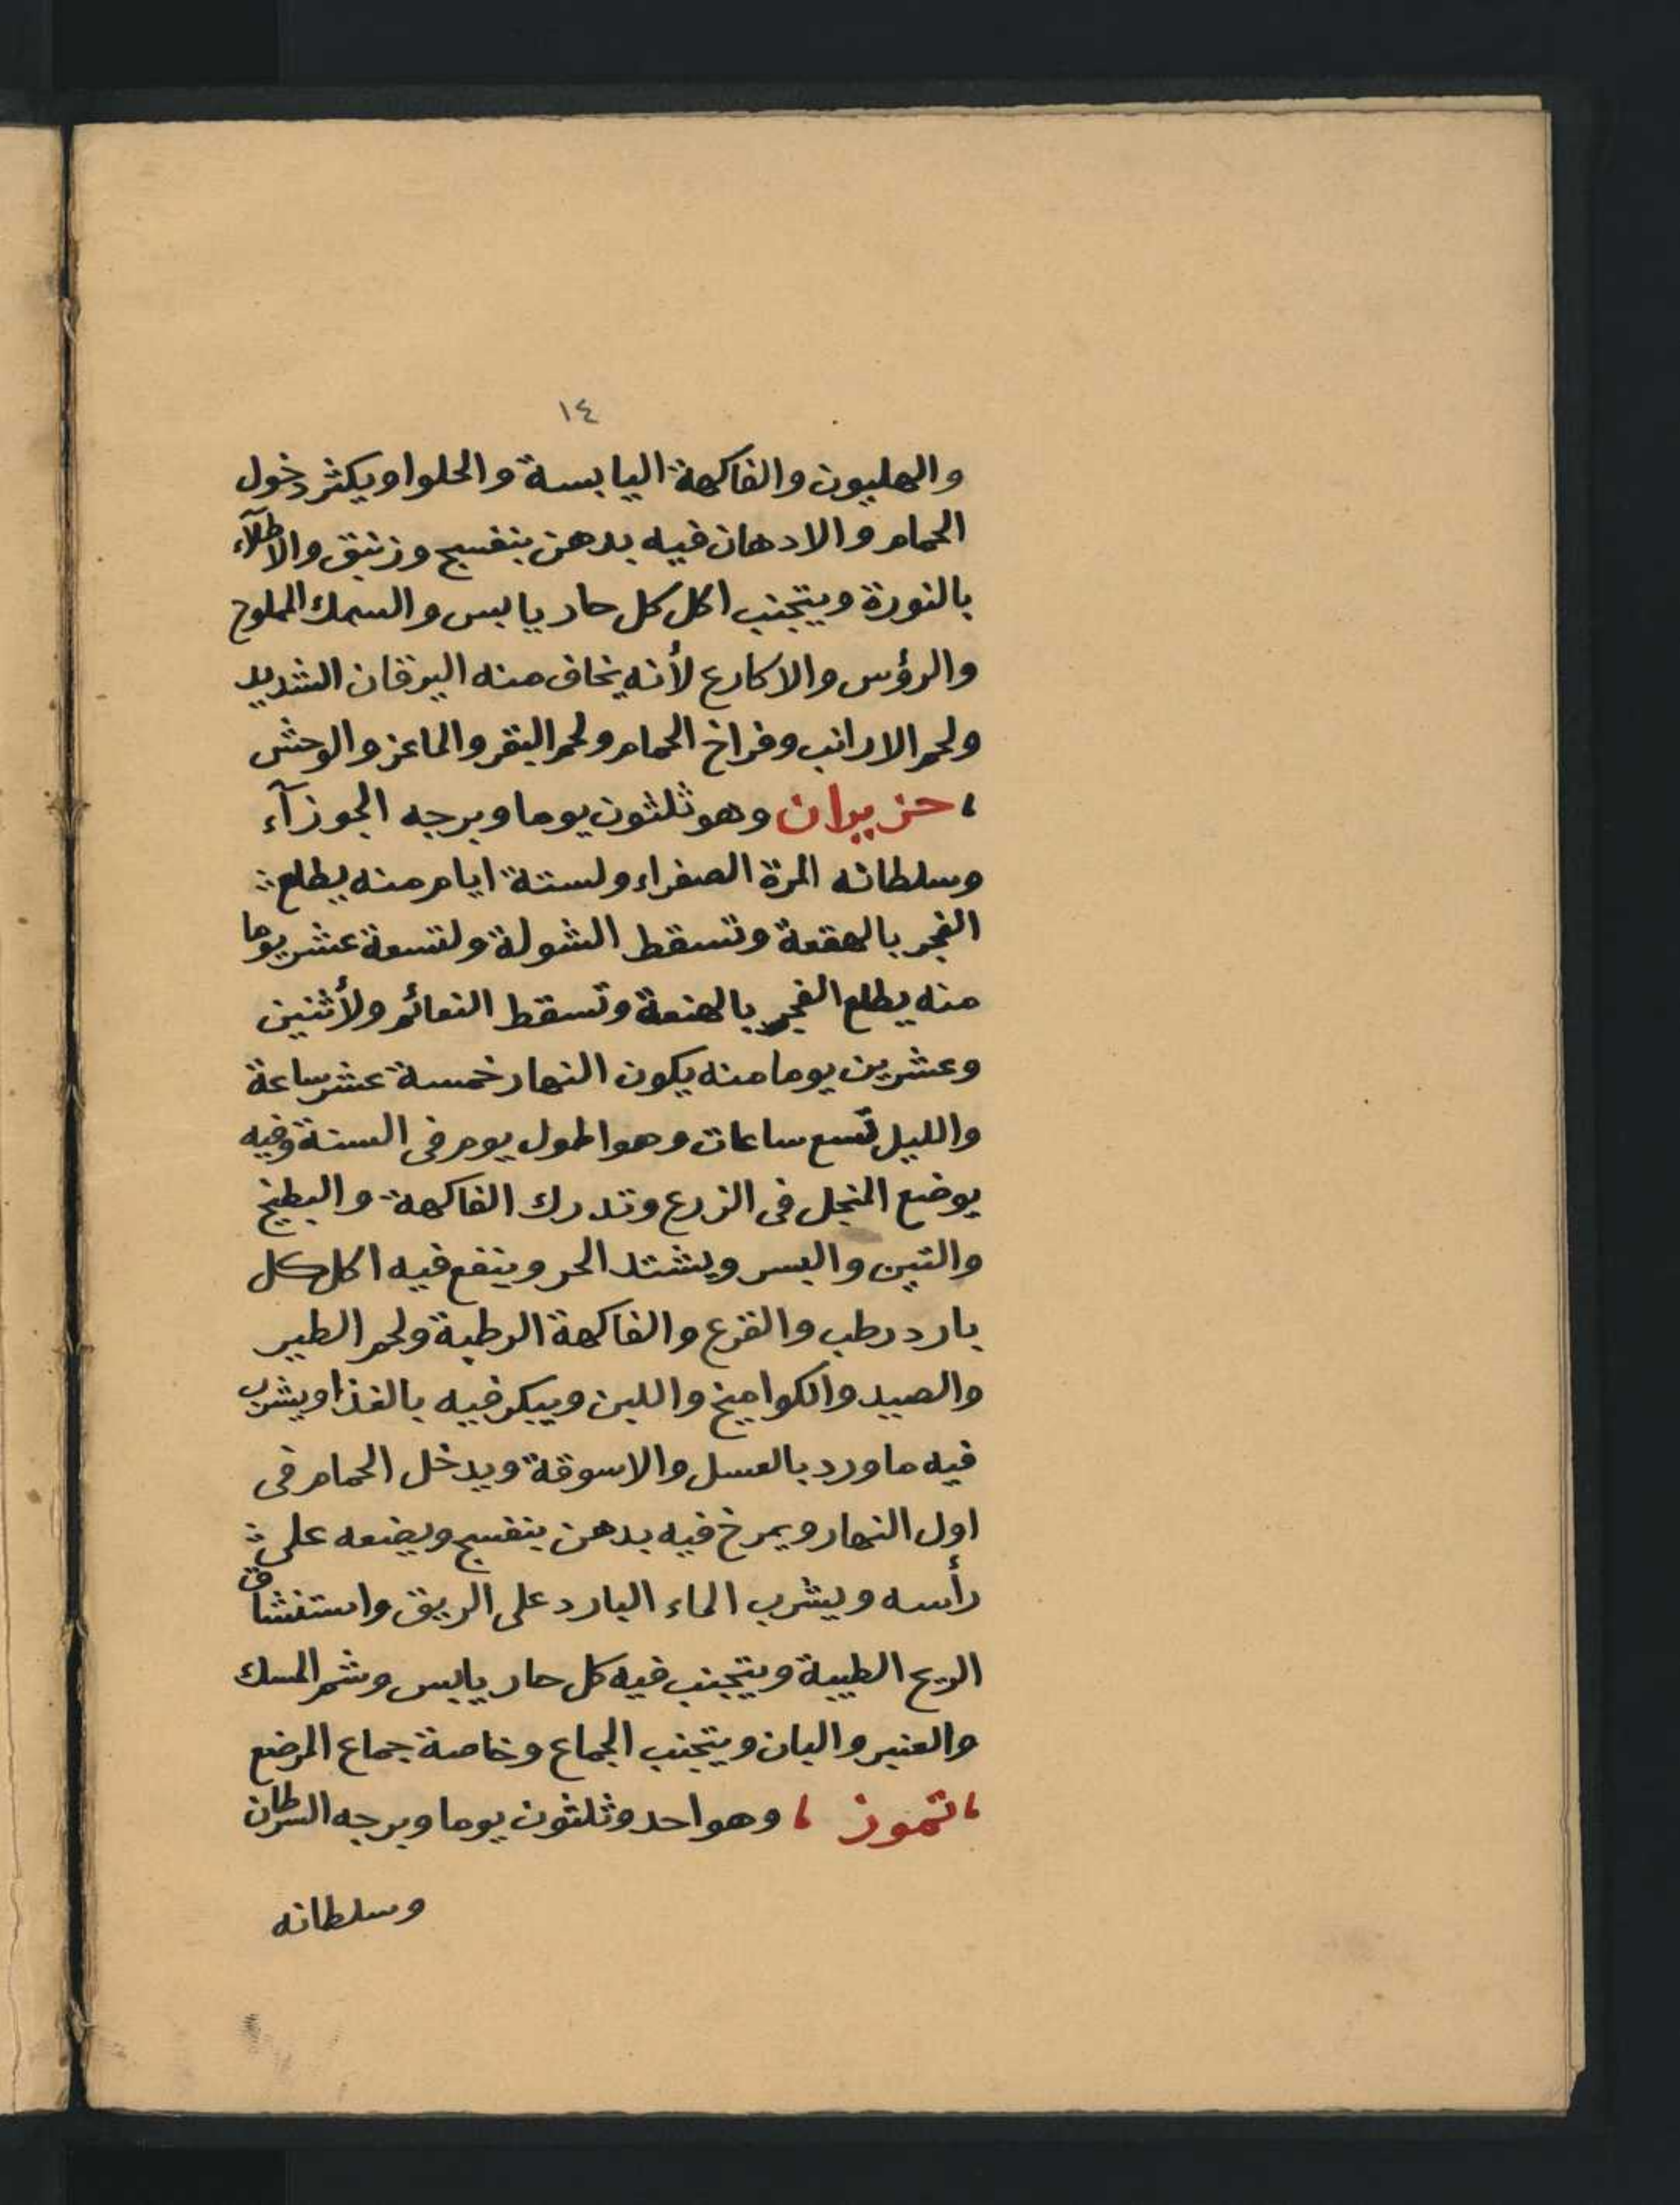 ١٤
والهليون والفاكهة اليابسة والحلوا ويكثر دخول
الحمام والادهان فيه بدهن بنفسج وزنبق والاطلآء
بالنورة ويتجنب اكل كل حار يابس والسمك المملوح
والرؤس والاكارع لأنه يخاف منه اليرقان الشديد
ولحم الارانب وفراخ الحمام ولحم البقر والماعز والوحش
، حزيران وهو ثلثون يوما وبرجه الجوزآء
وسلطانه المرة الصفراء ولستة ايام منه يطلع
الفجر بالهقعة وتسقط الشولة ولتسعة عشر يوما
منه يطلع الفجر بالهنعة وتسقط النعائم ولأثنين
وعشرين يوما منه يكون النهار خمسة عشر ساعة
والليل تسع ساعات وهو اطول يوم فى السنة وفيه
يوضع المنجل فى الزرع وتدرك الفاكهة والبطيخ
والتين والبسر ويشتد الحر وينفع فيه اكل كل
بارد رطب والقرع والفاكهة الرطبة ولحم الطير
والصيد والكواميخ واللبن ويبكر فيه بالغذا ويشرب
فيه ماورد بالعسل والاسوقة ويدخل الحمام فى
اول النهار ويمرخ فيه بدهن بنفسج ويضعه على
رأسه ويشرب الماء البارد على الريق واستنشاق
الريح الطيبة ويتجنب فيه كل حار يابس وشم المسك
والعنبر والبان ويتجنب الجماع وخاصة جماع المرضع
، تموز ، وهو احد وثلثون يوما وبرجه السرطان
وسلطانه